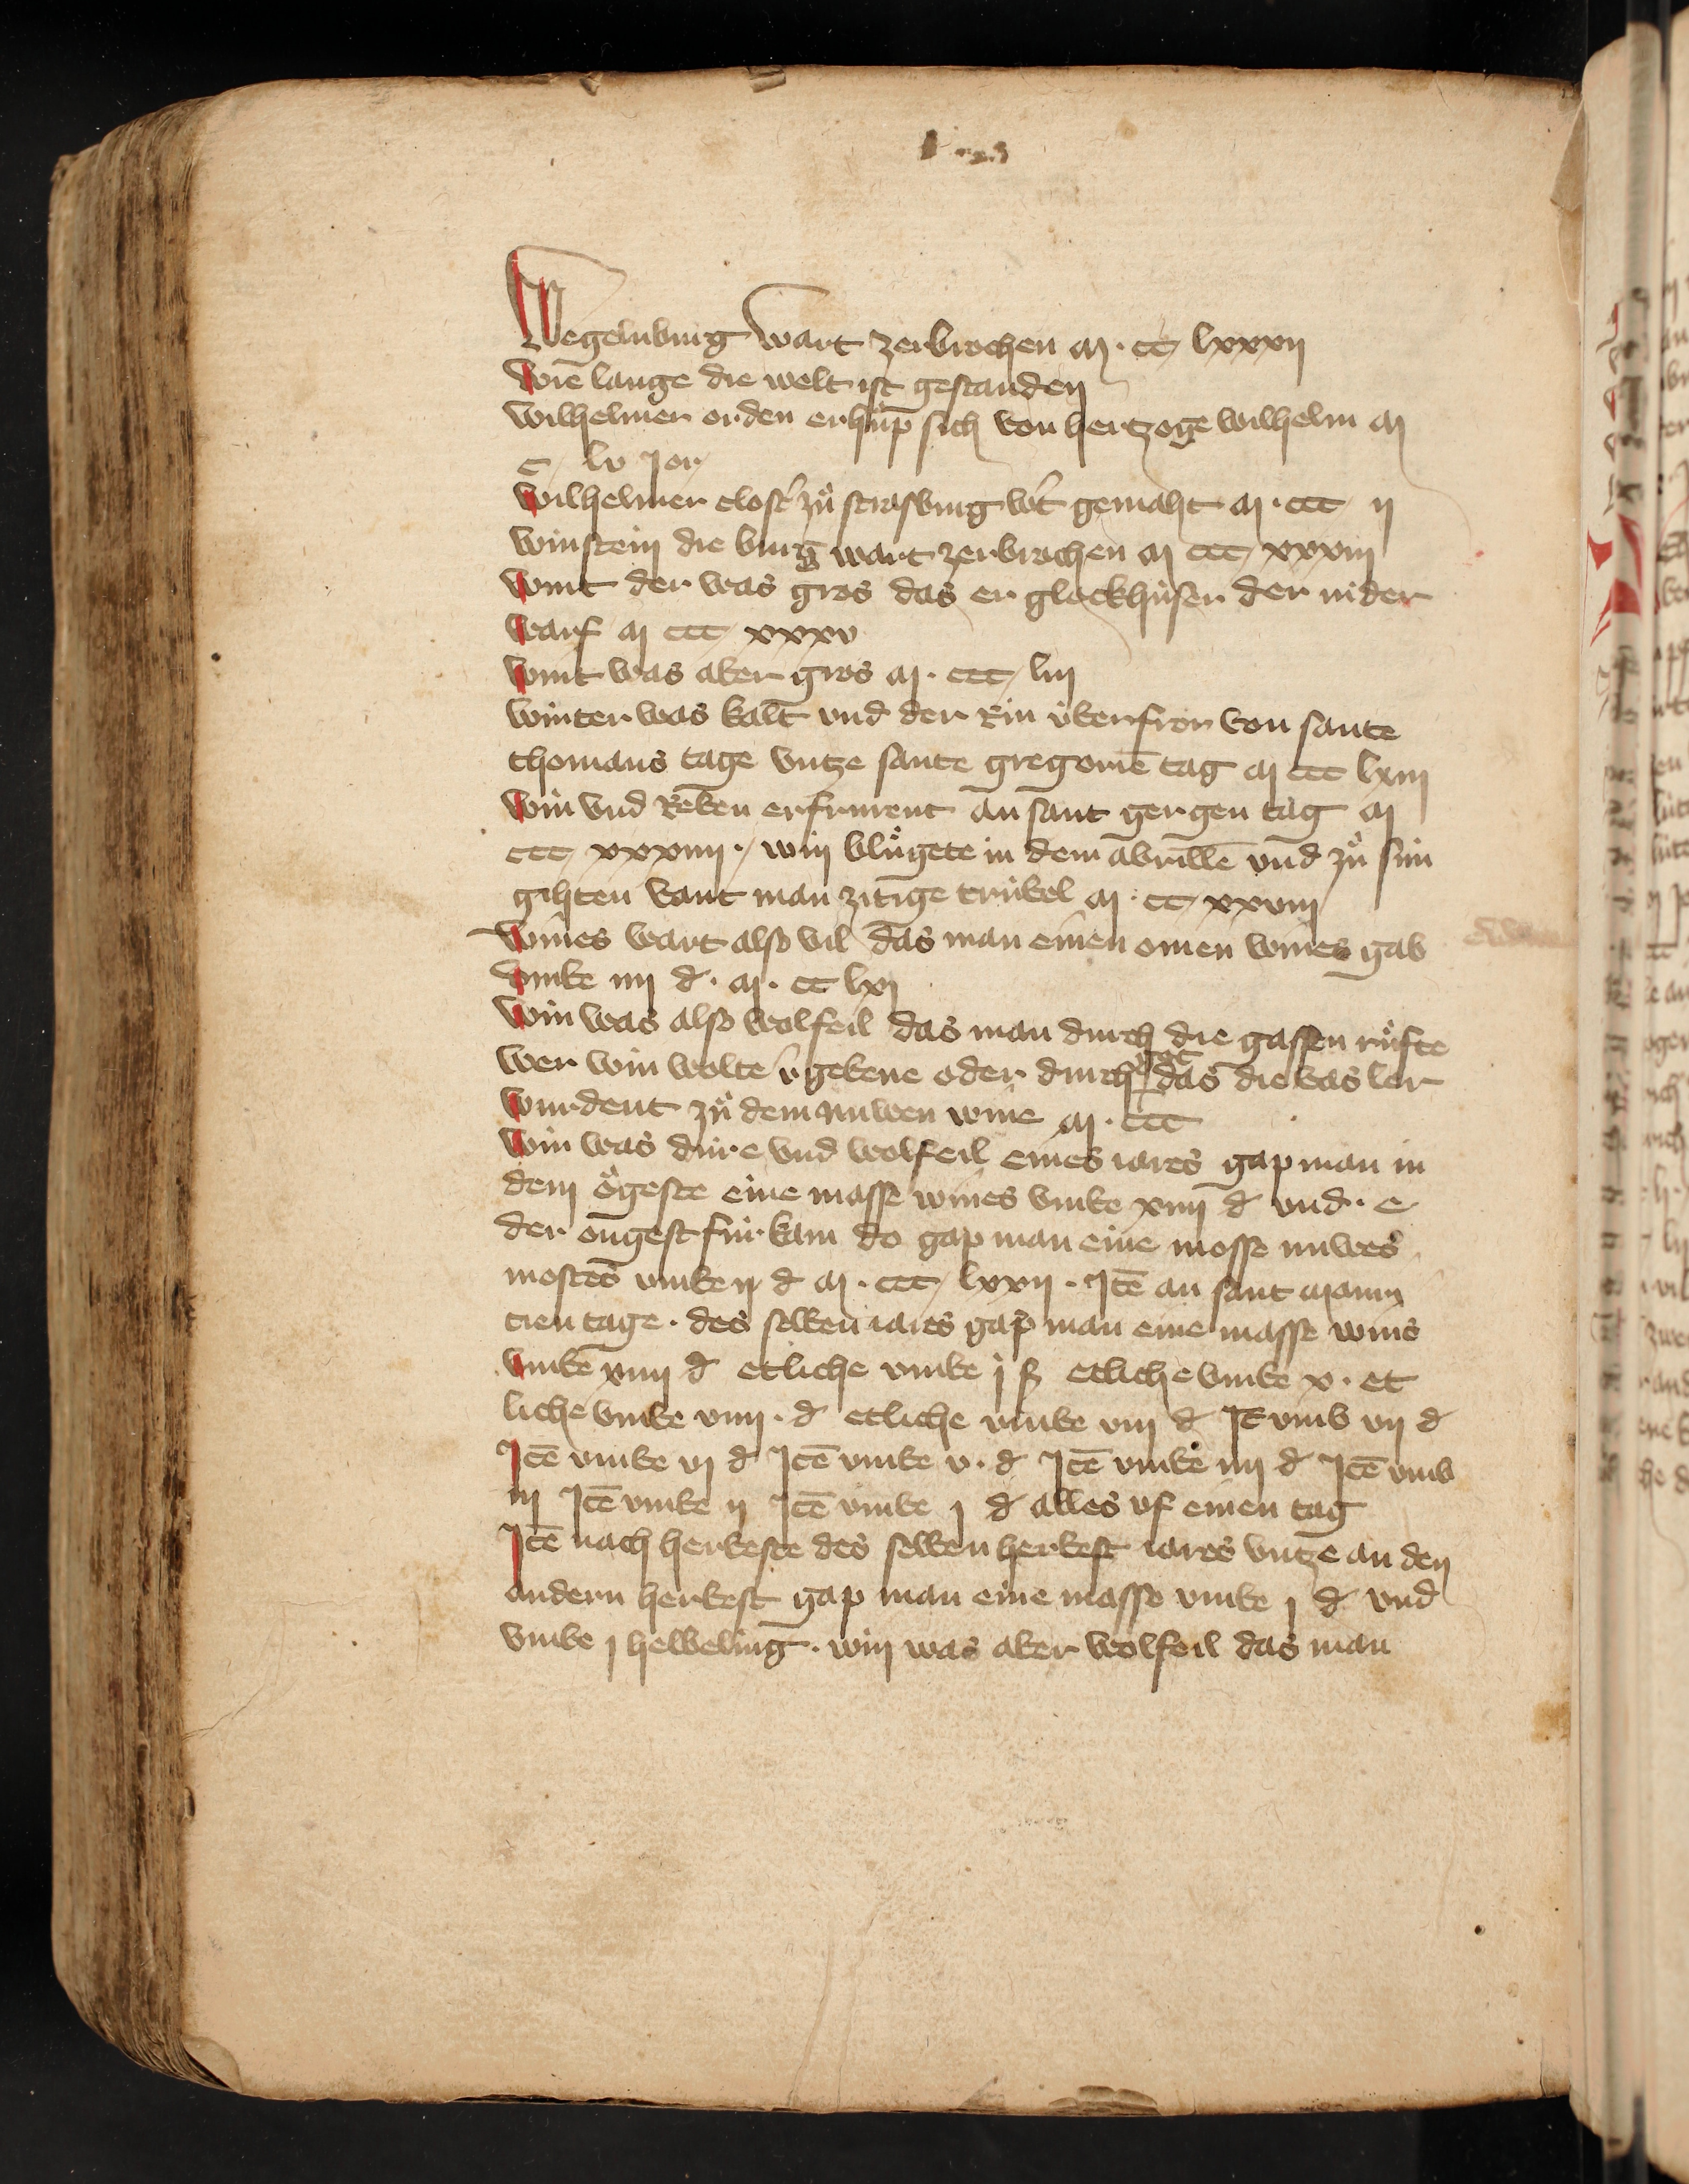 Wegelnburg wart zerbrochen M · cc lxxxij
Wie lange die welt ist gestanden
Wilhelmer orden erhůp sich von hertzoge wilhelm M
c lv Jor
Wilhelmer clost' zů strasburg w't gemaht M · ccc ij
Winstein die burg wart zerbrochen M ccc xxxiij
Wint der was gros das er glockhúser der nider
warf M ccc xxxv
Wint was aber gros M · ccc liij
Winter was kalt vnd der Rin v́berfror von sante
thomans tage vntze sante gregorien̄ tag M ccc lxiij
Win vnd Reben erfrurent an sant gergen tag M
ccc xxxiiij · win blůgete in dem abrillē vnd zů sún
gihten vant man zitige trúbel M · cc xxviij
Wines wart also vil das man einen omen wines gab
vmbe iiij d · M · cc lxj
Win was also wolfeil das man durch die gassen růfte
wer win wolte v'gebene oder durch got das die vas ler
wurdent zů dem nuwen wine M · ccc
Win was dúre vnd wolfeil eines iares gap man in
dem ŏgeste eine masse wines vmbe xiiij d vnd · e
der ougest fúr kam do gap man eine mosse nuwes
mostes vmbe ij d M · ccc lxxij · Itē an sant Marti
tien tage · des selben iares gap man eine masse wins
vmbe xiiij d etliche vmbe j ß etliche vmbe x · et
liche vmbe viiij · d etliche vmbe viij d It vmb vij d
Itē vmbe vj d Itē vmbe v · d Itē vmbe iiij d Itē vmb
iij Itē vmbe ij Itē vmbe j d alles vf einen tag
Itē nach herbeste des selben herbest iares vntze an den
andern herbest gap man eine masse vmbe j d vnd
vmbe j helbeling · win was aber wolfeil das man